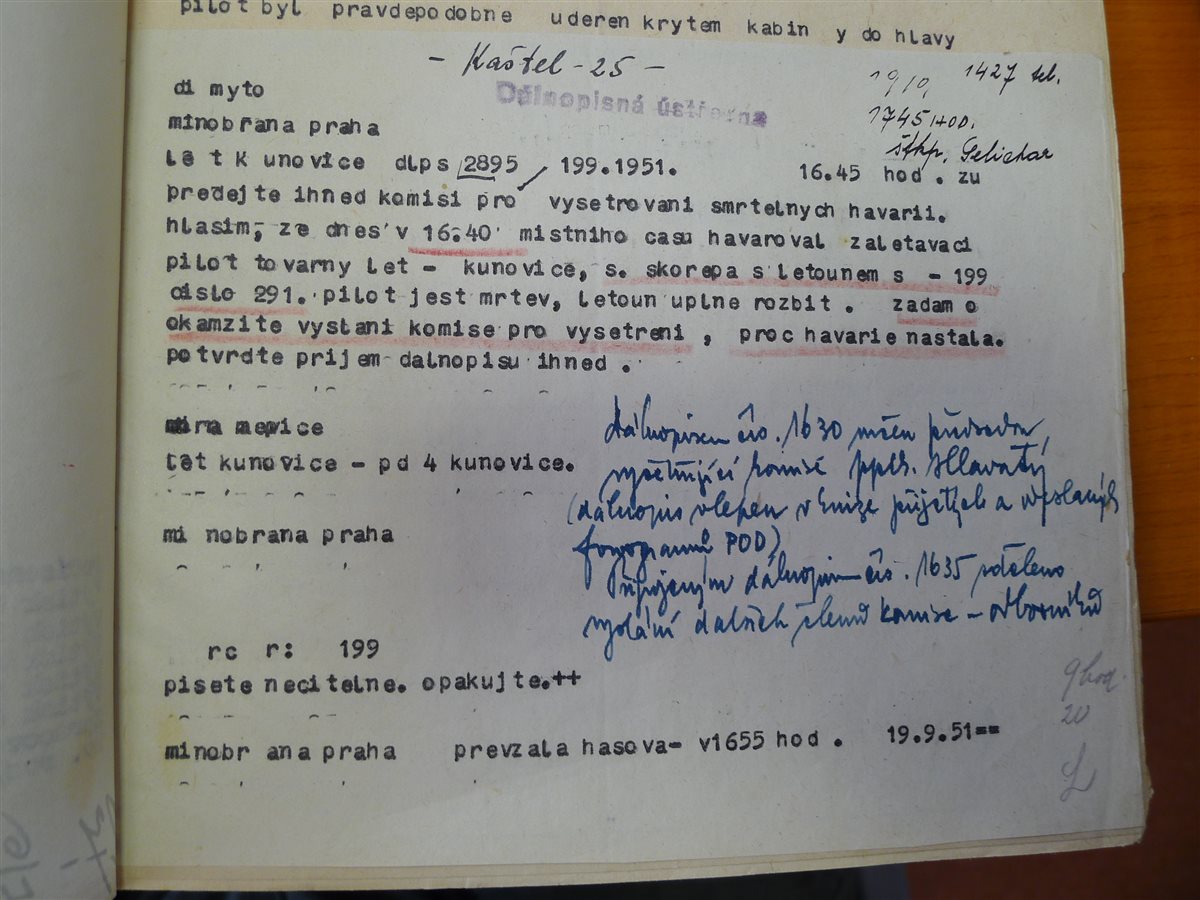 pilot byl pravdepodobne uderen krytem kabin y do hlavy
- Kaštel - 25 -
Dálnopisná ústředna
19/10, 1427 tel.
1745 HOD.
štkp. Pelichar
di myto
minobrana praha
let k unovice dlps 2895 / 199.1951. 16.45 hod . zu
predejte ihned komisi pro vysetrovani smrtelnych havarii.
hlasim, ze dnes v 16.40 mistniho casu havaroval zaletavaci
pilot tovarny let - kunovice, s. skorepa s letounem s - 199
cislo 291. pilot jest mrtev, letoun uplne rozbit . zadam o
okamzite vyslani komise pro vysetreni , proc havarie nastala.
potvrdte prijem dalnopisu ihned .
let kunovice - pd 4 kunovice.
mi nobrana praha
dálnopisem čís. 1630 určen předseda
vyšetřující komise pplk. Hlavatý
(dálnopis vlepen v knize přijatých a vyslaných
fonogramů POD)
Připojeným dálnopisem čís. 1635 sděleno
vyslání dalších členů komise - odborníků
rc r: 199
pisete necitelne. opakujte.++
minobr ana praha prevzala hasova- v1655 hod . 19.9.51==
9 hod.
20